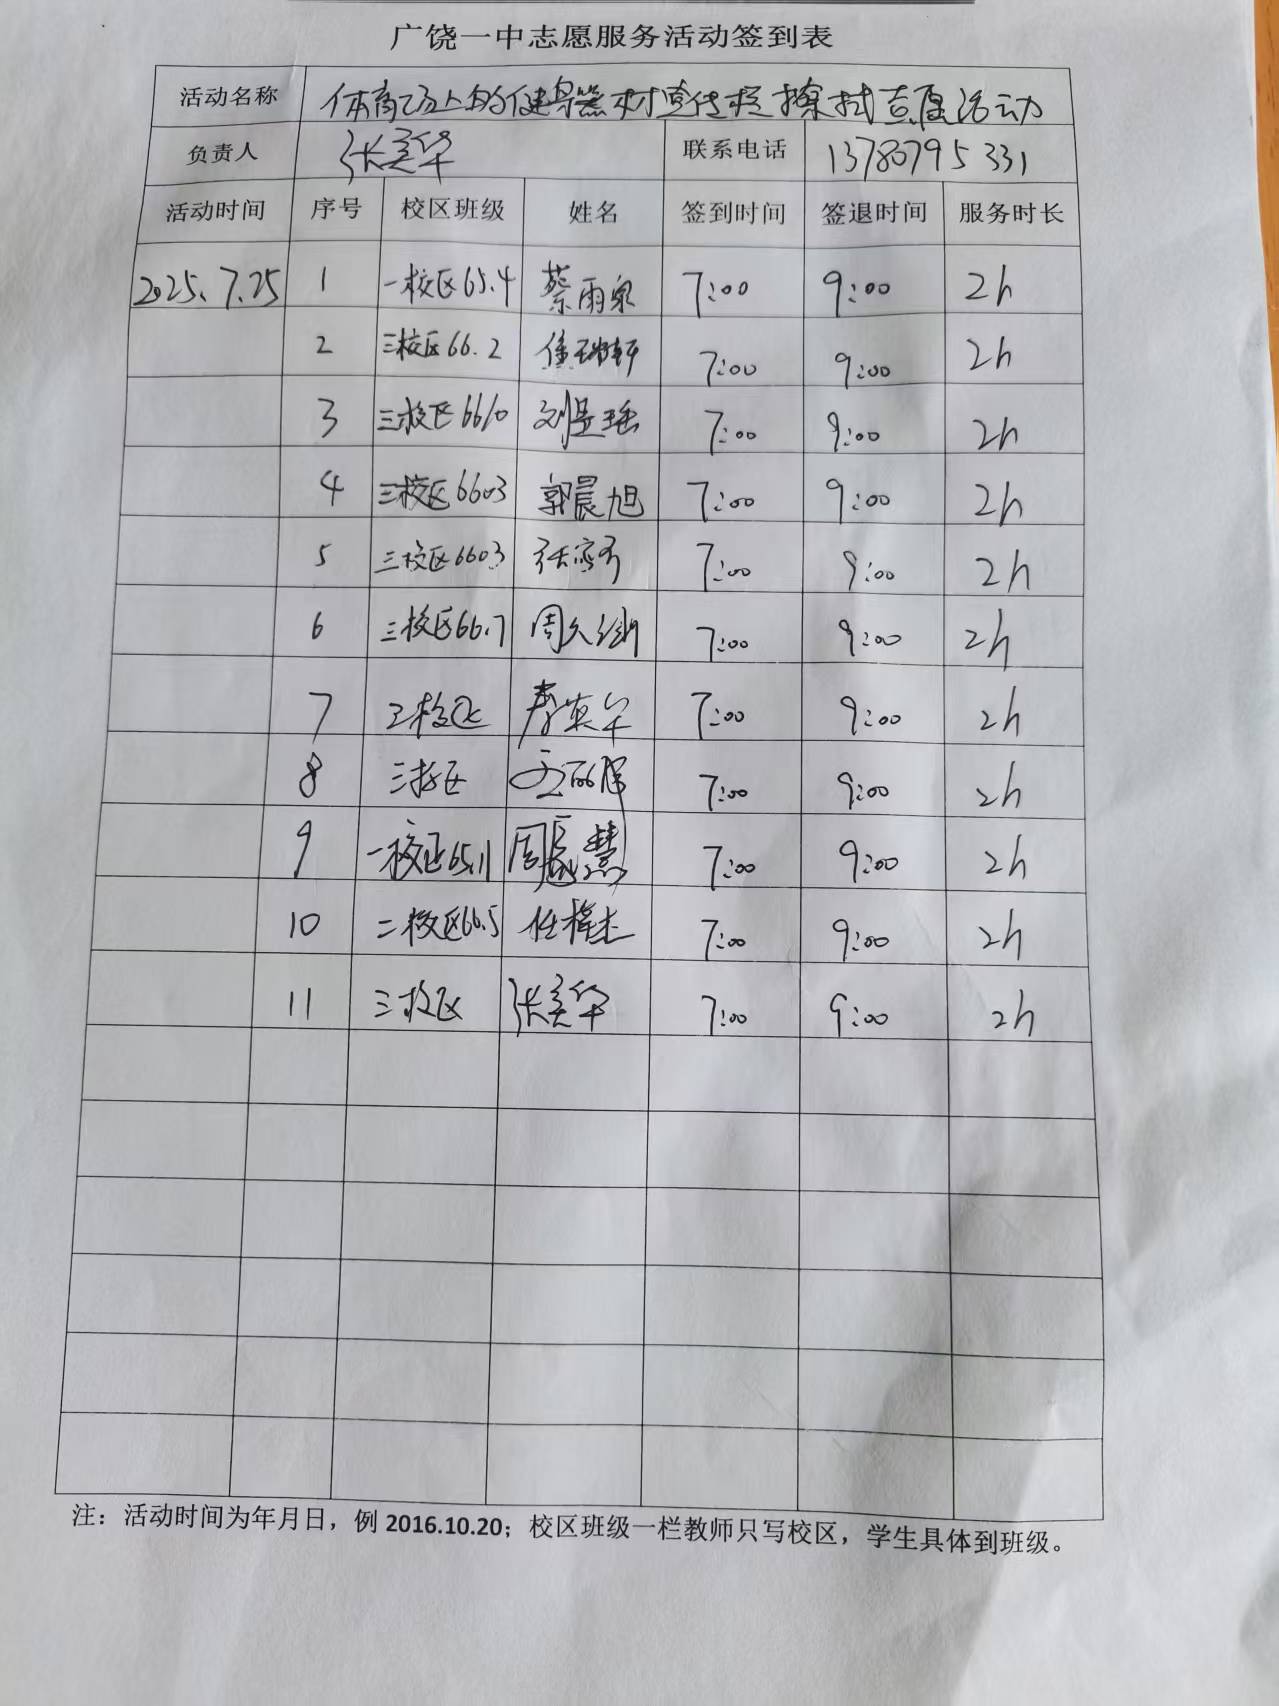 广饶一中志愿服务活动签到表
活动名称 体育场上的健身器材宣传栏擦拭志愿活动
负责人 张美华 联系电话 13780795331
活动时间 序号 校区班级 姓名 签到时间 签退时间 服务时长
2025.7.25 1 一校区65.4 蔡雨泉 7:00 9:00 2h
2 三校区66.2 7:00 9:00 2h
3 三校区6610 刘昱瑶 7:00 9:00 2h
4 三校区6603 郭晨旭 7:00 9:00 2h
5 三校区6603 7:00 9:00 2h
6 三校区66.7 7:00 9:00 2h
7 三校区 7:00 9:00 2h
8 三校区 7:00 9:00 2h
9 一校区65.11 7:00 9:00 2h
10 二校区66.5 7:00 9:00 2h
11 三校区 张美华 7:00 9:00 2h
注：活动时间为年月日，例 2016.10.20；校区班级一栏教师只写校区，学生具体到班级。